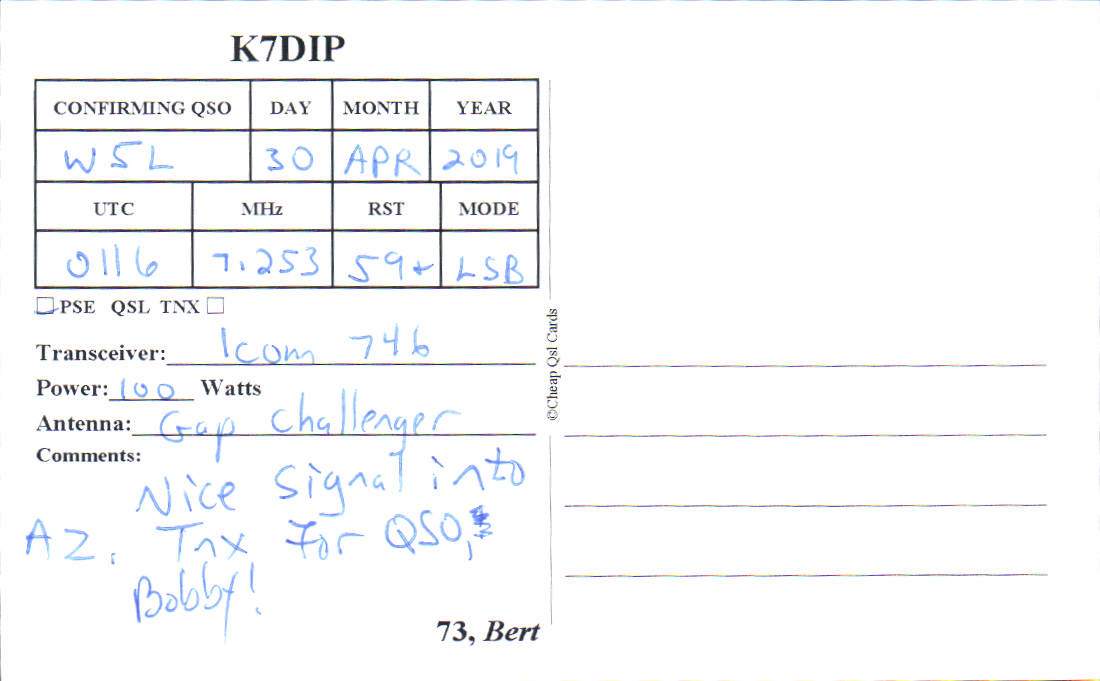 K7DIP
CONFIRMING QSO DAY MONTH YEAR
W5L 30 APR 2019
UTC MHz RST MODE
0116 7.253 59+ LSB
PSE QSL TNX
Transceiver: Icom 746
Power: 100 Watts
Antenna: Gap Challenger
Comments:
Nice signal into
AZ. Tnx for QSO,
Bobby!
73, Bert
©Cheap Qsl Cards